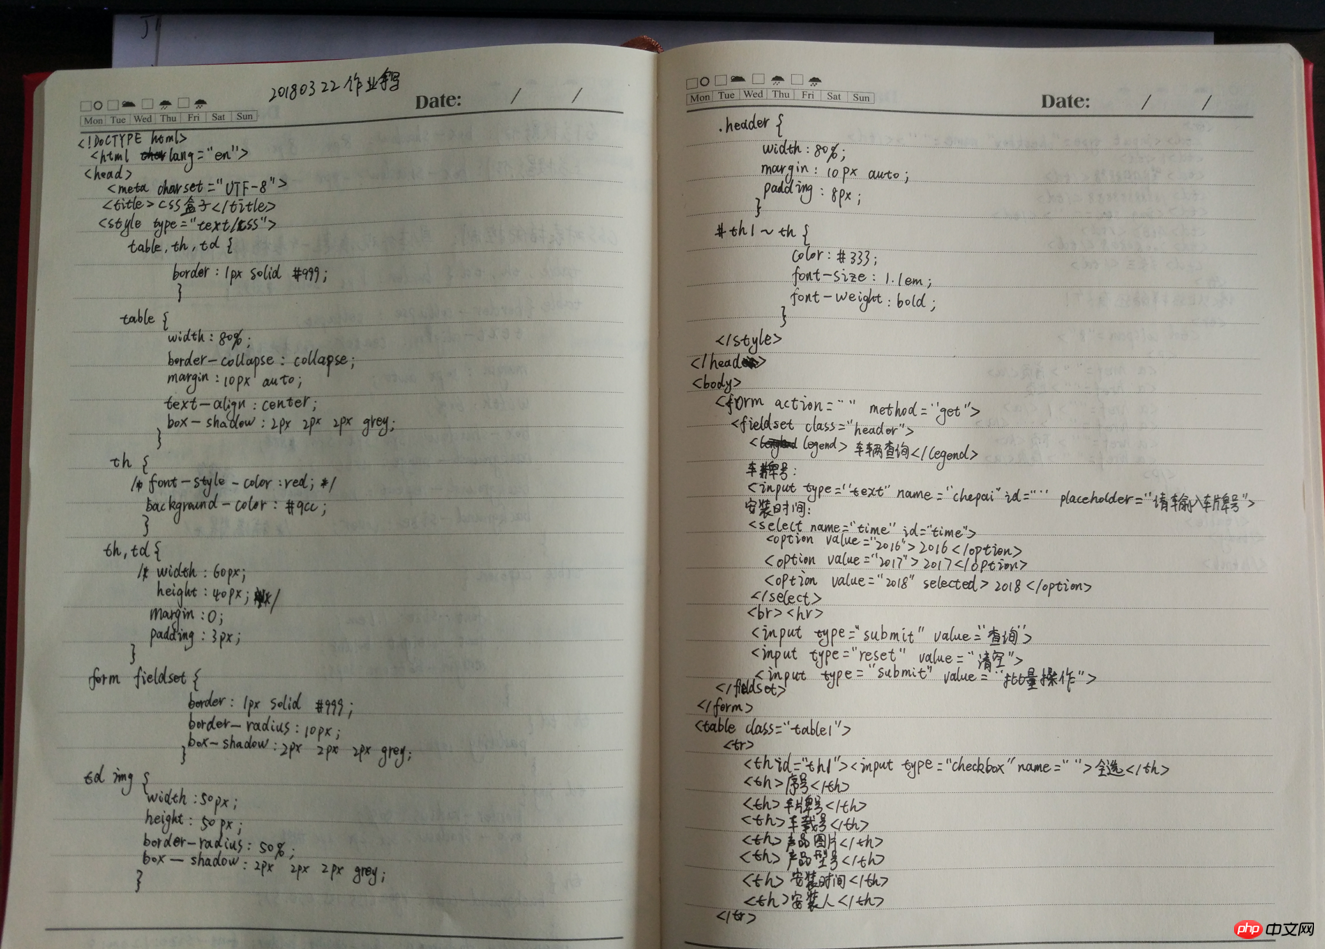 20180322作业手写
Mon Tue Wed Thu Fri Sat Sun
Date: / /
<!DOCTYPE html>
<html lang="en">
<head>
<meta charset="UTF-8">
<title>css盒子</title>
<style type="text/css">
table, th, td {
border: 1px solid #999;
}
table {
width: 80%;
border-collapse: collapse;
margin: 10px auto;
text-align: center;
box-shadow: 2px 2px 2px grey;
}
th {
/* font-style-color: red; */
background-color: #9cc;
}
th, td {
/* width: 60px;
height: 40px; */
margin: 0;
padding: 3px;
}
form fieldset {
border: 1px solid #999;
border-radius: 10px;
box-shadow: 2px 2px 2px grey;
}
td img {
width: 50px;
height: 50px;
border-radius: 50%;
box-shadow: 2px 2px 2px grey;
}
Mon Tue Wed Thu Fri Sat Sun
Date: / /
.header {
width: 80%;
margin: 10px auto;
padding: 8px;
}
#th1 ~ th {
color: #333;
font-size: 1.1em;
font-weight: bold;
}
</style>
</head>
<body>
<form action="" method="get">
<fieldset class="header">
<legend>车辆查询</legend>
车牌号:
<input type="text" name="chepai" id="" placeholder="请输入车牌号">
安装时间:
<select name="time" id="time">
<option value="2016">2016</option>
<option value="2017">2017</option>
<option value="2018" selected>2018</option>
</select>
<br><hr>
<input type="submit" value="查询">
<input type="reset" value="清空">
<input type="submit" value="批量操作">
</fieldset>
</form>
<table class="table1">
<tr>
<th id="th1"><input type="checkbox" name="">全选</th>
<th>序号</th>
<th>车牌号</th>
<th>车载号</th>
<th>产品图片</th>
<th>产品型号</th>
<th>安装时间</th>
<th>安装人</th>
</tr>
php 中文网